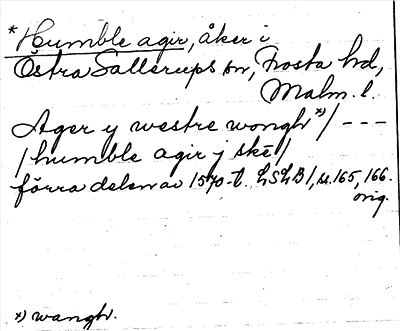 * Humble agir, åker i
Östra Sallerups sn, Frosta hd,
Malm. l.
Ager y westre wongh *) / - - -
/ humble agir j skē /
förra delen av 1570-t. LSLB 1, s. 165, 166.
orig.
*) wangh.